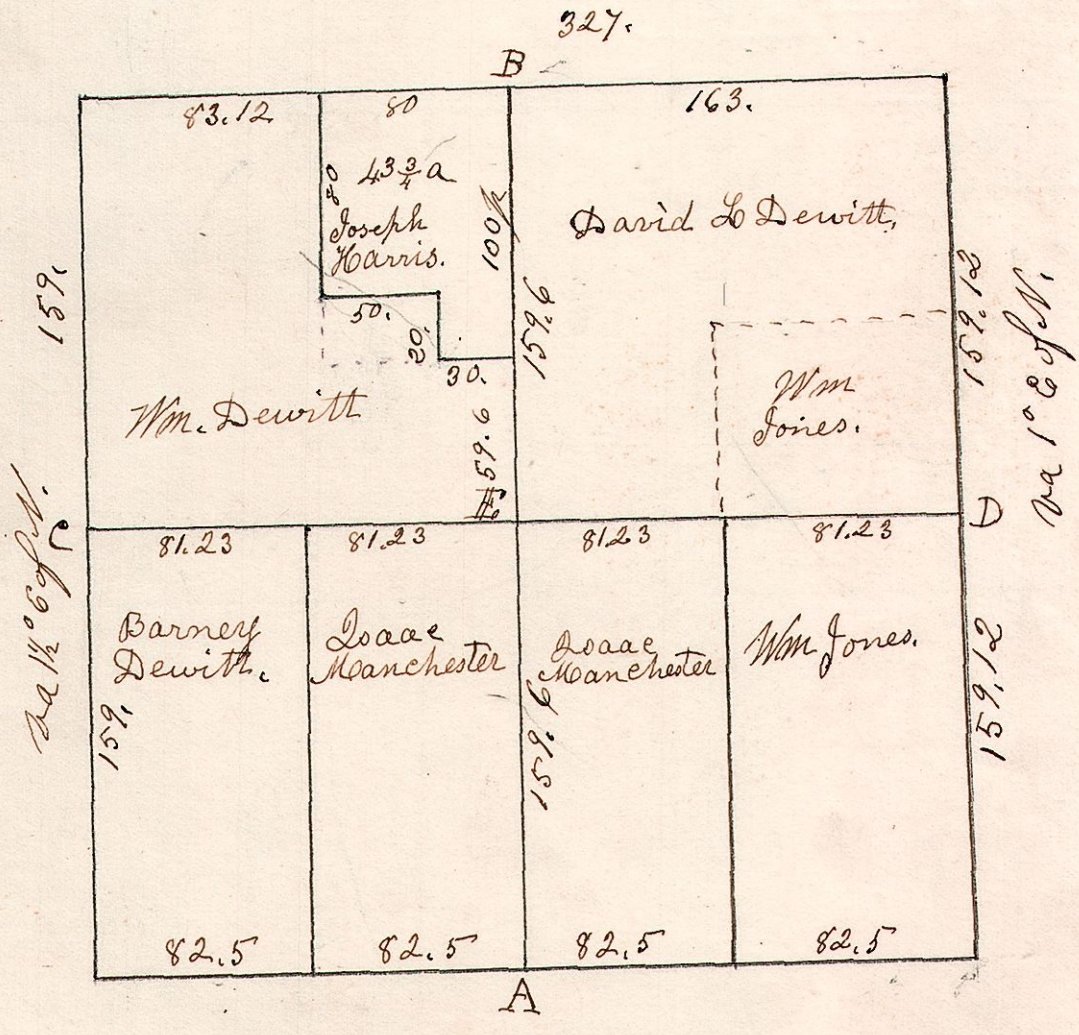 327.
B
83.12
80
163.
80
43 3/4 a
Joseph
Harris.
100p
David L Dewitt.
159.
50.
20.
30.
159.6
159.12
va 1° E of N.
Wm. Dewitt
59.6
Wm
Jones.
va 1 1/2° E of N.
C
D
81.23
81.23
81.23
81.23
Barney
Dewitt.
Isaac
Manchester
Isaac
Manchester
Wm Jones.
159.
159.6
159.12
82.5
82.5
82.5
82.5
A